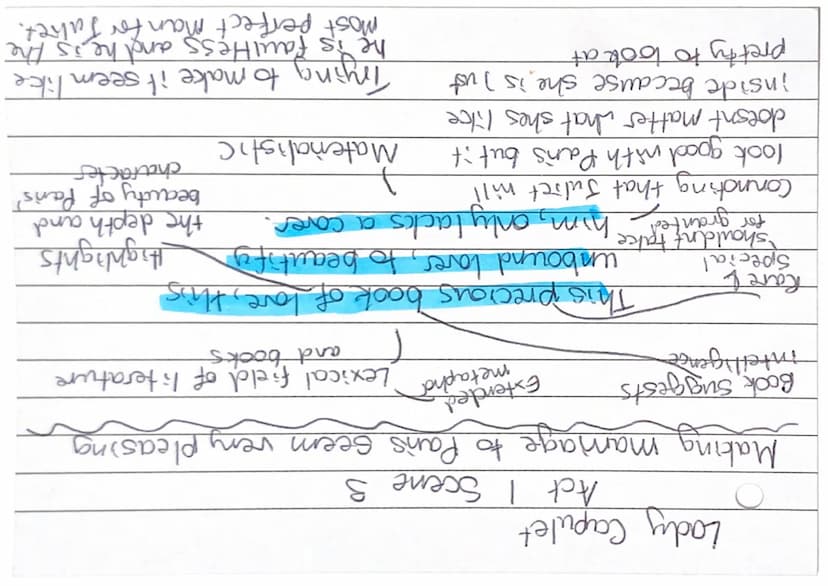 Lady Capulet
Act 1 Scene 3
Making marriage to Paris seem very pleasing
Book suggests
intelligence
Extended
metaphor
Lexical field of literature
and books
Rare &
special
'shouldn't take
for granted
This precious book of love, this
unbound lover, to beautify
him, only lacks a cover.
Highlights
the depth and
beauty of Paris'
character
Connoting that Juliet will
look good with Paris but it
doesnt matter what shes like
inside because she is just
pretty to look at
Materialistic
Trying to make it seem like
he is faultless and he is the
most perfect man for Juliet.